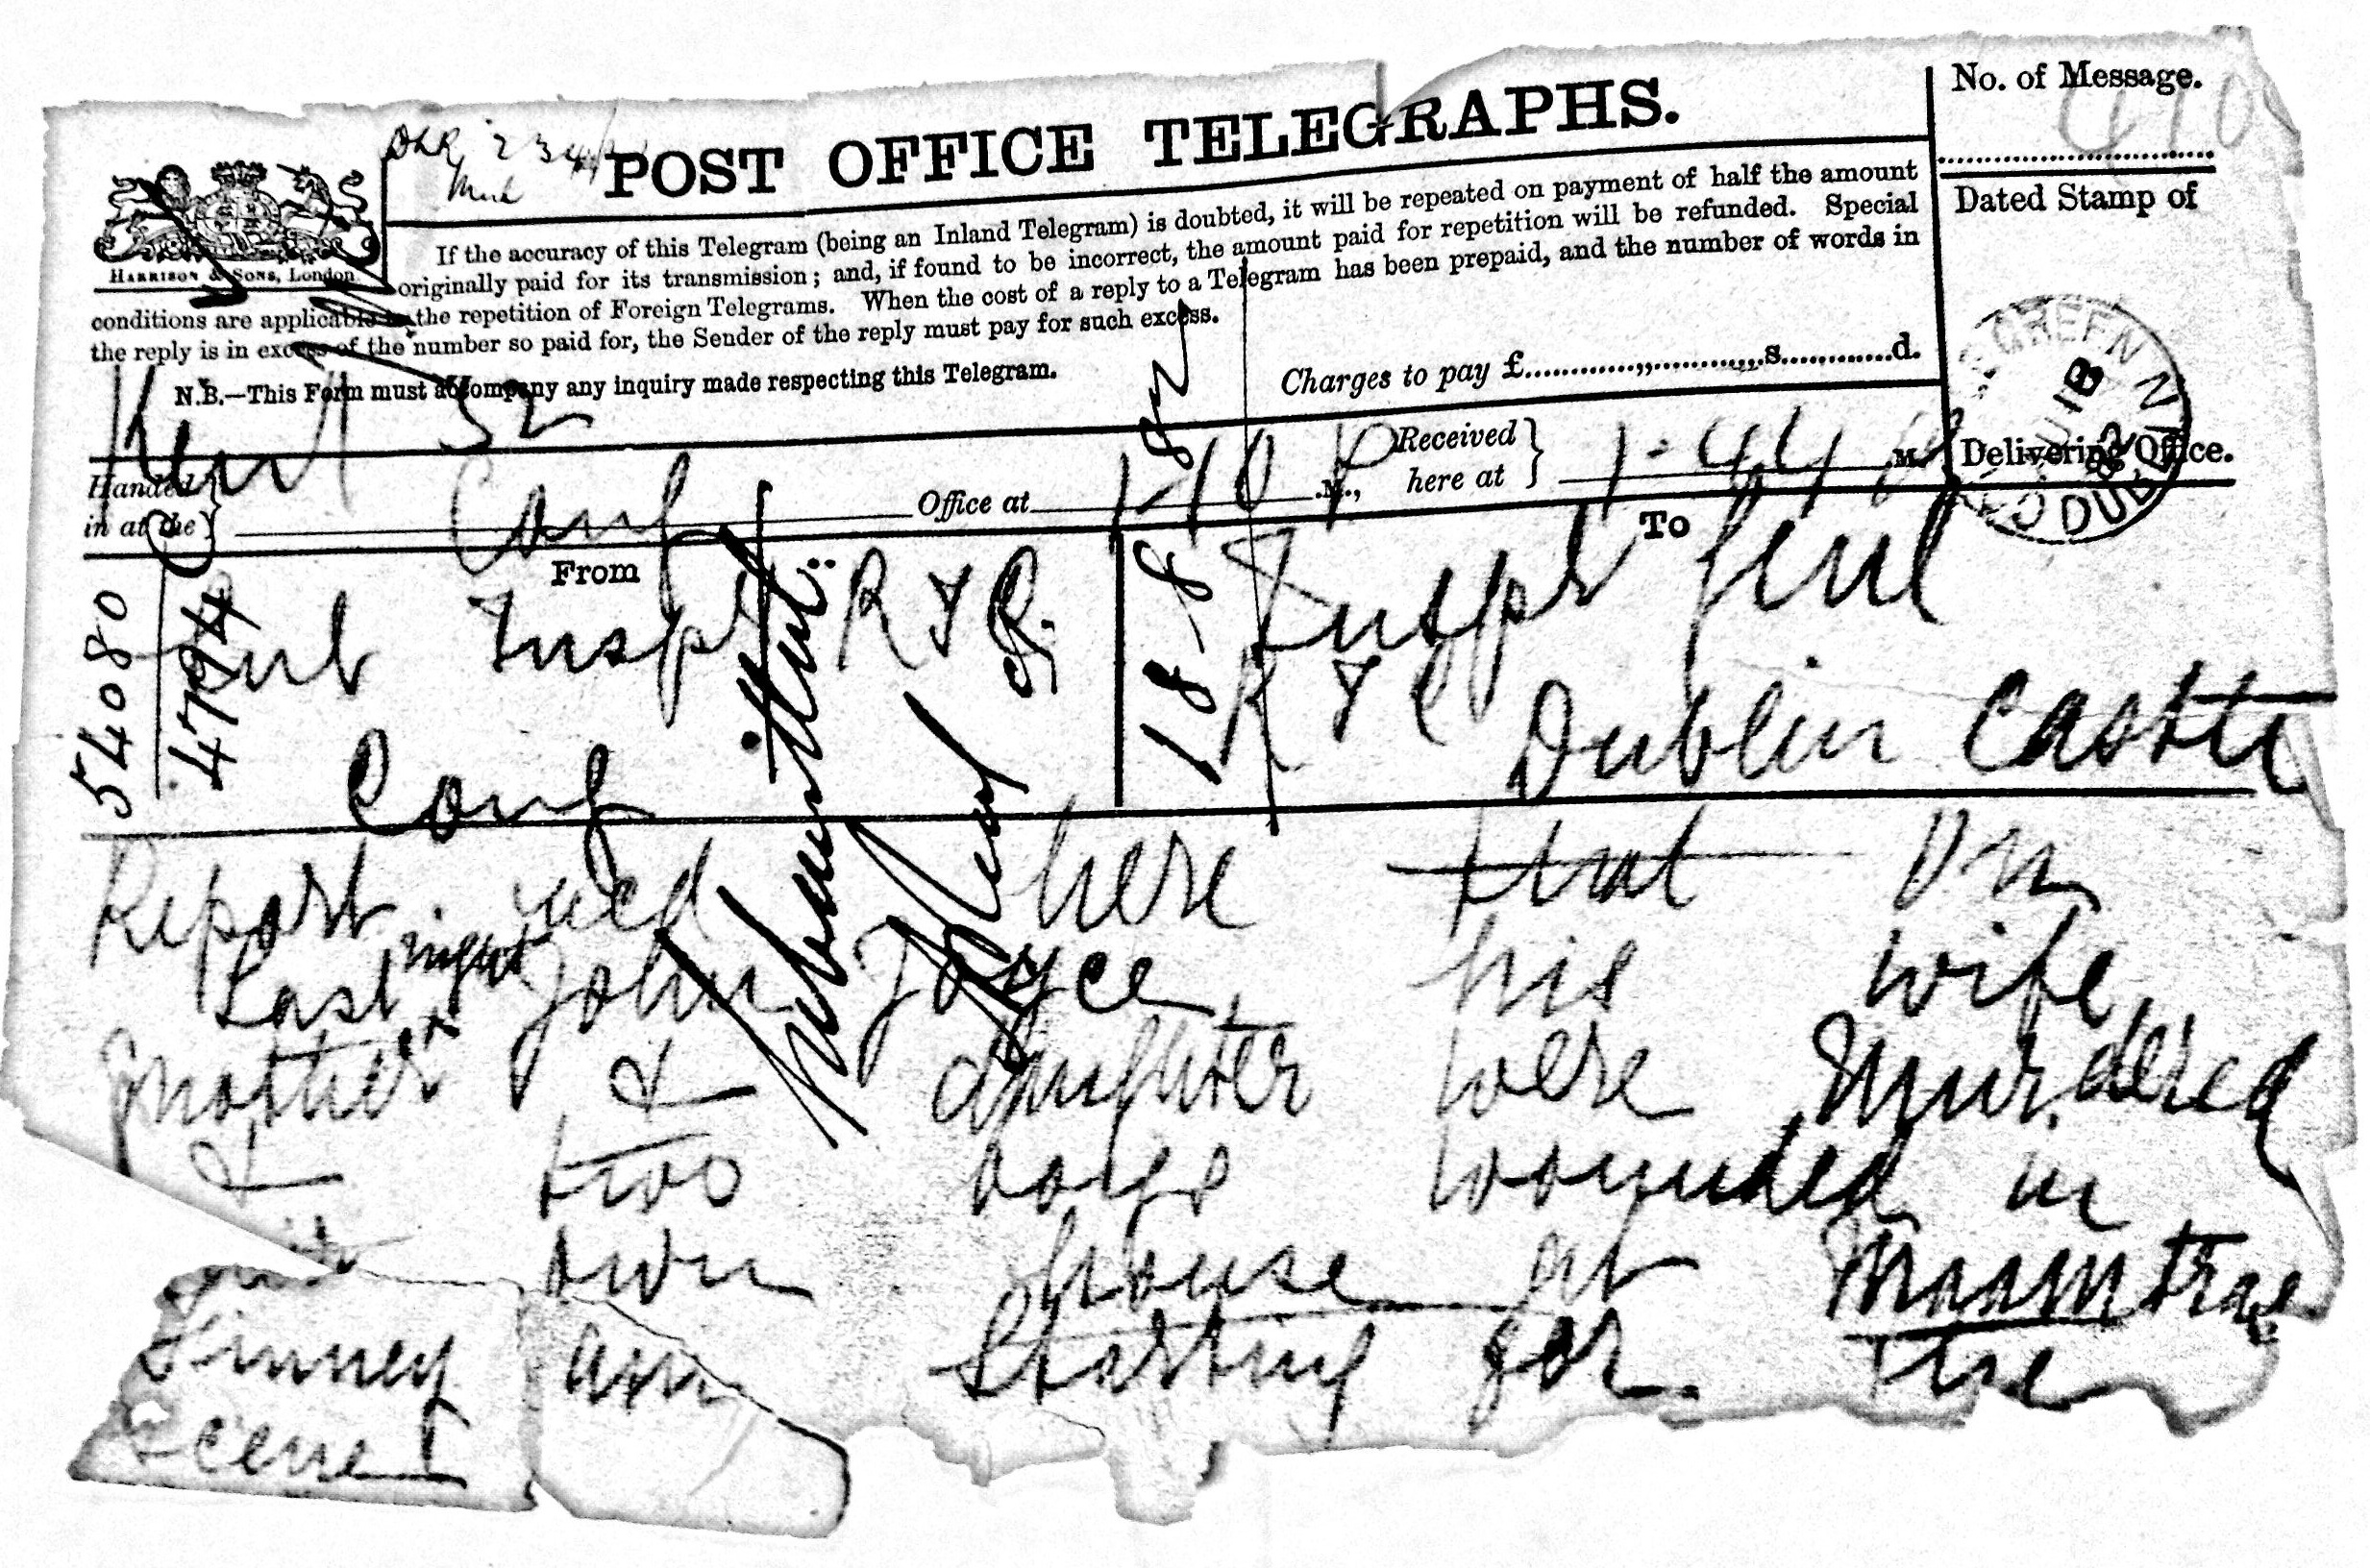 POST OFFICE TELEGRAPHS.
No. of Message.
HARRISON & SONS, London.
If the accuracy of this Telegram (being an Inland Telegram) is doubted, it will be repeated on payment of half the amount
originally paid for its transmission; and, if found to be incorrect, the amount paid for repetition will be refunded. Special
conditions are applicable to the repetition of Foreign Telegrams. When the cost of a reply to a Telegram has been prepaid, and the number of words in
the reply is in excess of the number so paid for, the Sender of the reply must pay for such excess.
N.B.—This Form must accompany any inquiry made respecting this Telegram.
Charges to pay £ s. d.
Dated Stamp of
Delivering Office.
52
Handed in at the
Cong
Office at
1-10 P M.,
Received here at
1-44 M.
From
Sub Inspr R I C
Cong
To
Inspr Genl
R I C Dublin Castle
54080
18-8-82
Report recd here that on
Last night John Joyce, his wife,
mother & daughter were Murdered
& two boys wounded in
own house at Maamtras
Finney am starting for the
Scene